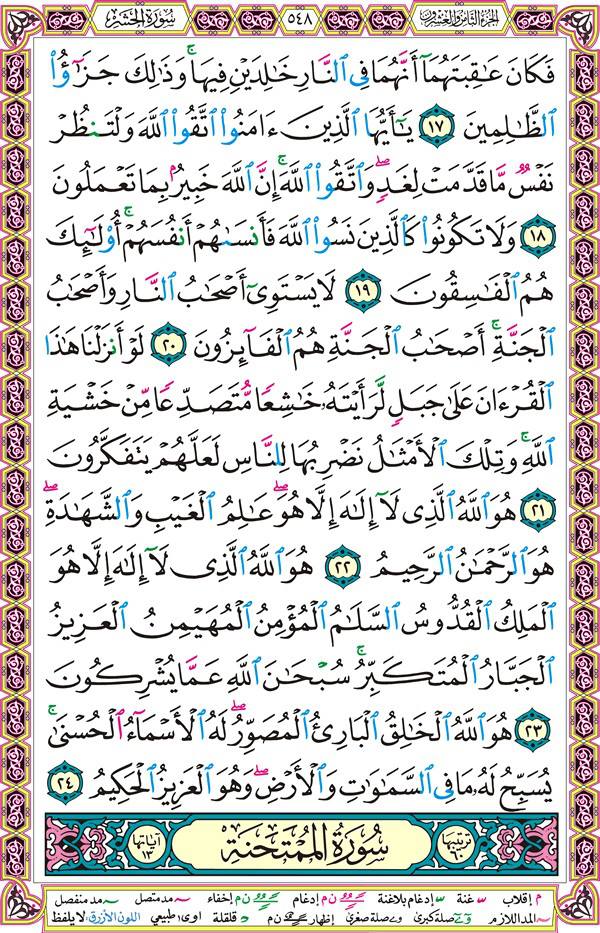 الجزء الثامن والعشرون ٥٤٨ سورة الحشر
فَكَانَ عَاقِبَتَهُمَآ أَنَّهُمَا فِى ٱلنَّارِ خَالِدَيْنِ فِيهَا ۚ وَذَٰلِكَ جَزَٰٓؤُا۟
ٱلظَّالِمِينَ ١٧ يَٰٓأَيُّهَا ٱلَّذِينَ ءَامَنُوا۟ ٱتَّقُوا۟ ٱللَّهَ وَلْتَنظُرْ
نَفْسٌ مَّا قَدَّمَتْ لِغَدٍ ۖ وَٱتَّقُوا۟ ٱللَّهَ ۚ إِنَّ ٱللَّهَ خَبِيرٌۢ بِمَا تَعْمَلُونَ
١٨ وَلَا تَكُونُوا۟ كَٱلَّذِينَ نَسُوا۟ ٱللَّهَ فَأَنسَىٰهُمْ أَنفُسَهُمْ ۚ أُو۟لَٰٓئِكَ
هُمُ ٱلْفَاسِقُونَ ١٩ لَا يَسْتَوِىٓ أَصْحَابُ ٱلنَّارِ وَأَصْحَابُ
ٱلْجَنَّةِ ۚ أَصْحَابُ ٱلْجَنَّةِ هُمُ ٱلْفَآئِزُونَ ٢٠ لَوْ أَنزَلْنَا هَٰذَا
ٱلْقُرْءَانَ عَلَىٰ جَبَلٍ لَّرَأَيْتَهُۥ خَاشِعًا مُّتَصَدِّعًا مِّنْ خَشْيَةِ
ٱللَّهِ ۚ وَتِلْكَ ٱلْأَمْثَالُ نَضْرِبُهَا لِلنَّاسِ لَعَلَّهُمْ يَتَفَكَّرُونَ
٢١ هُوَ ٱللَّهُ ٱلَّذِى لَآ إِلَٰهَ إِلَّا هُوَ ۖ عَالِمُ ٱلْغَيْبِ وَٱلشَّهَادَةِ ۖ
هُوَ ٱلرَّحْمَٰنُ ٱلرَّحِيمُ ٢٢ هُوَ ٱللَّهُ ٱلَّذِى لَآ إِلَٰهَ إِلَّا هُوَ
ٱلْمَلِكُ ٱلْقُدُّوسُ ٱلسَّلَامُ ٱلْمُؤْمِنُ ٱلْمُهَيْمِنُ ٱلْعَزِيزُ
ٱلْجَبَّارُ ٱلْمُتَكَبِّرُ ۚ سُبْحَانَ ٱللَّهِ عَمَّا يُشْرِكُونَ
٢٣ هُوَ ٱللَّهُ ٱلْخَالِقُ ٱلْبَارِئُ ٱلْمُصَوِّرُ ۖ لَهُ ٱلْأَسْمَآءُ ٱلْحُسْنَىٰ ۚ
يُسَبِّحُ لَهُۥ مَا فِى ٱلسَّمَٰوَاتِ وَٱلْأَرْضِ ۖ وَهُوَ ٱلْعَزِيزُ ٱلْحَكِيمُ ٢٤
ترتيبها ٦٠ سُورَةُ المُمْتَحنَة آياتها ١٣
م إقلاب س غنة إدغام بلاغنة ن م إدغام ن م إخفاء مد متصل مد منفصل
المد اللازم صلة كبرى صلة صغرى إظهار ن م قلقلة اوى: طبيعي اللون الأزرق: لا يلفظ